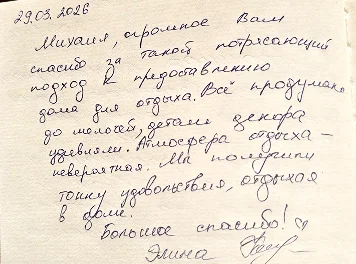 29.03.2026
Михаил, огромное Вам
спасибо за такой потрясающий
подход к предоставлению
дома для отдыха. Всё продумано
до мелочей, детали декора
удивляли. Атмосфера отдыха –
невероятная. Мы получили
тонну удовольствия, отдыхая
в доме.
Большое спасибо! ♡
Элина